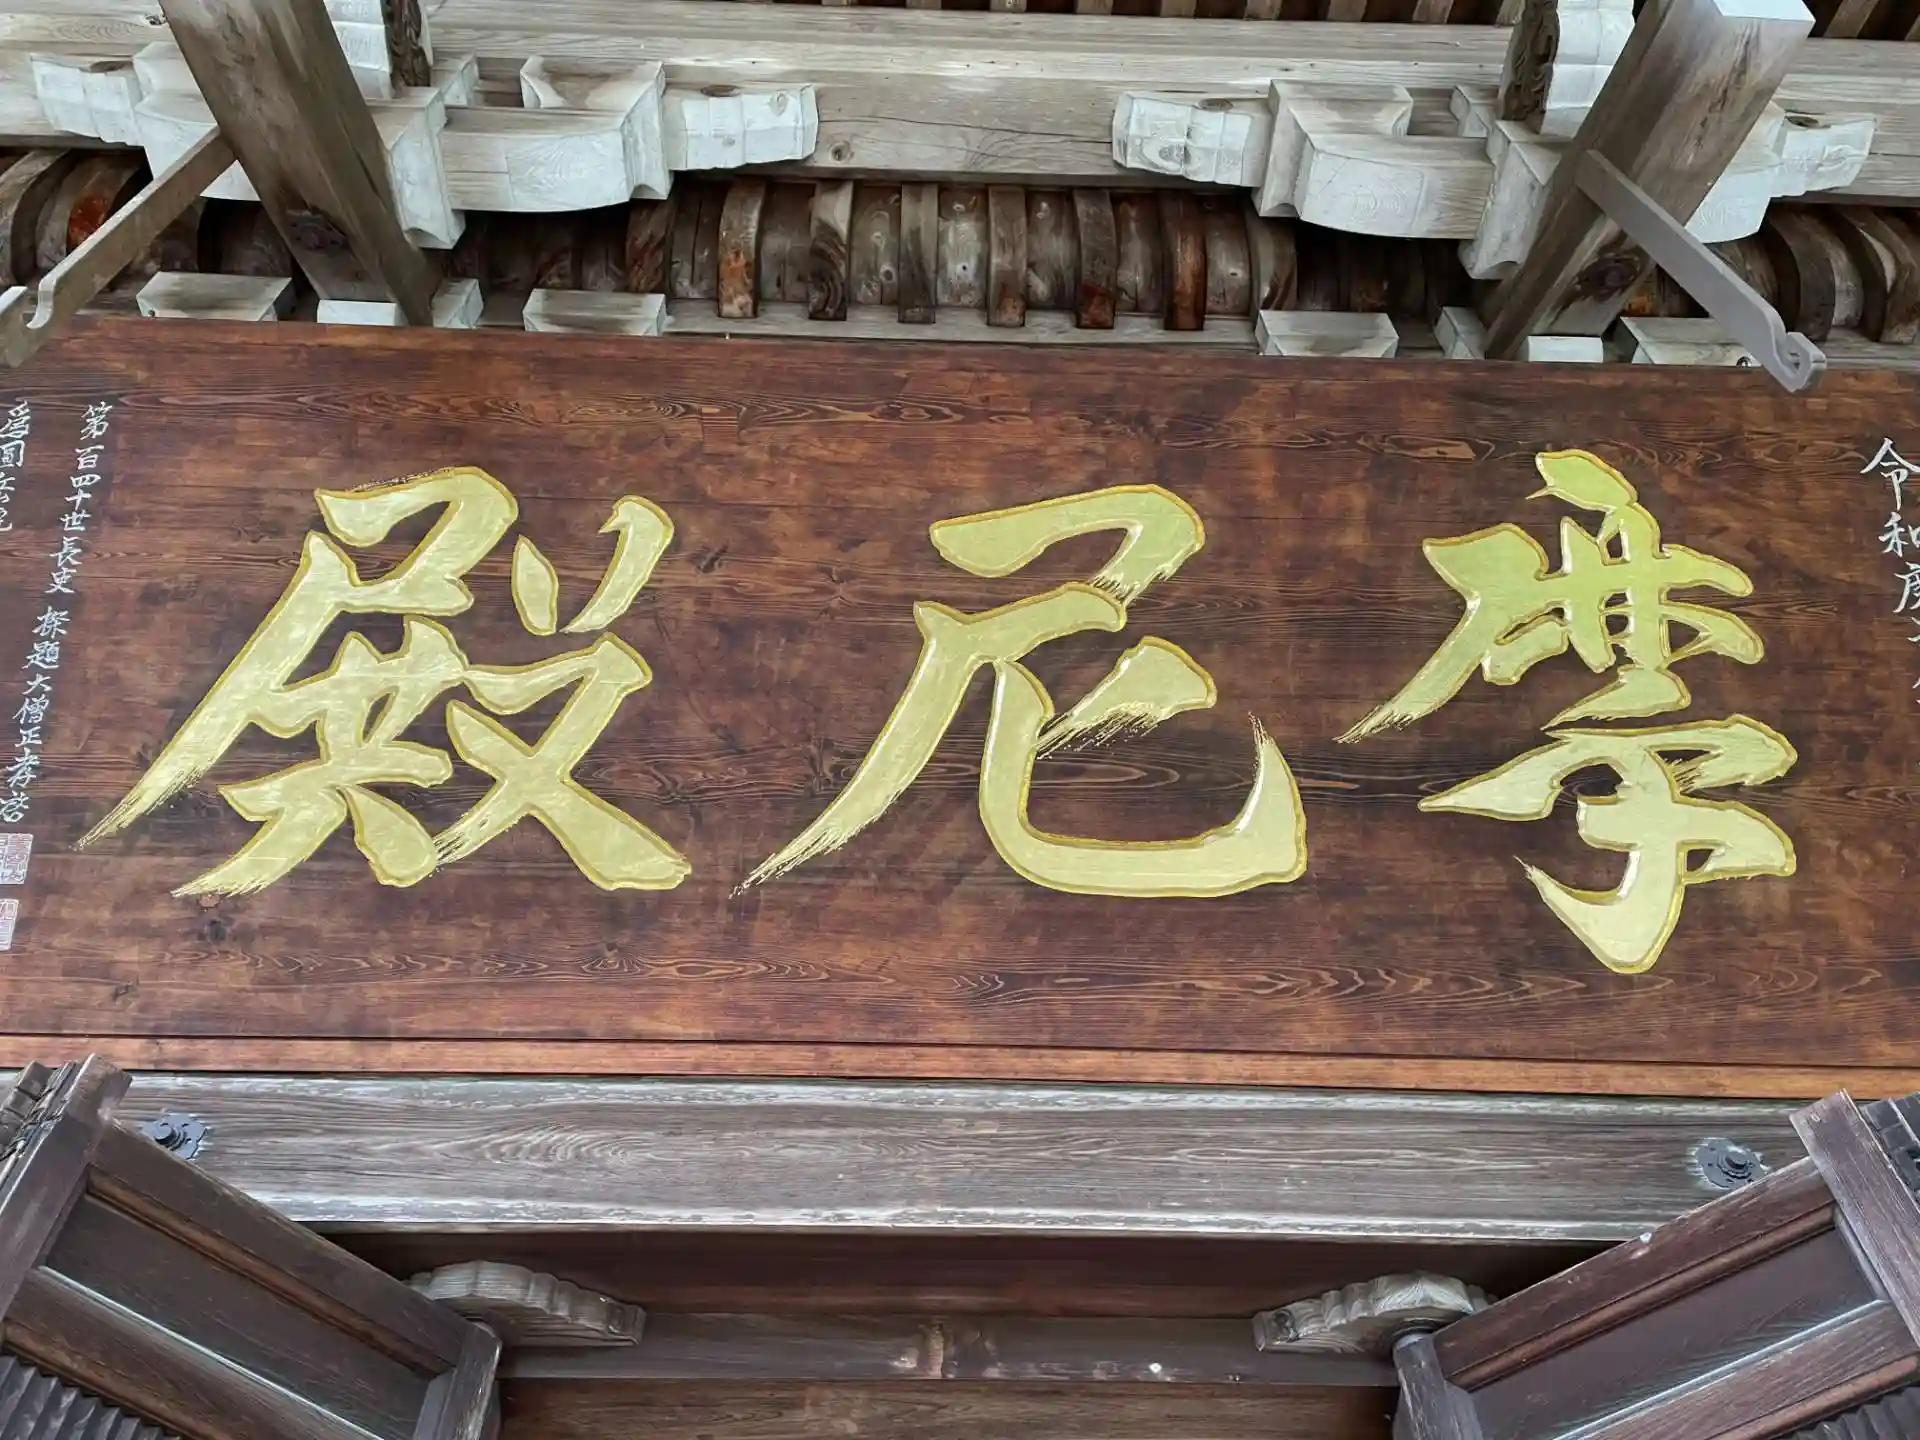 令和庚
摩尼殿
第百四十世長吏 探題大僧正孝啓
為圓